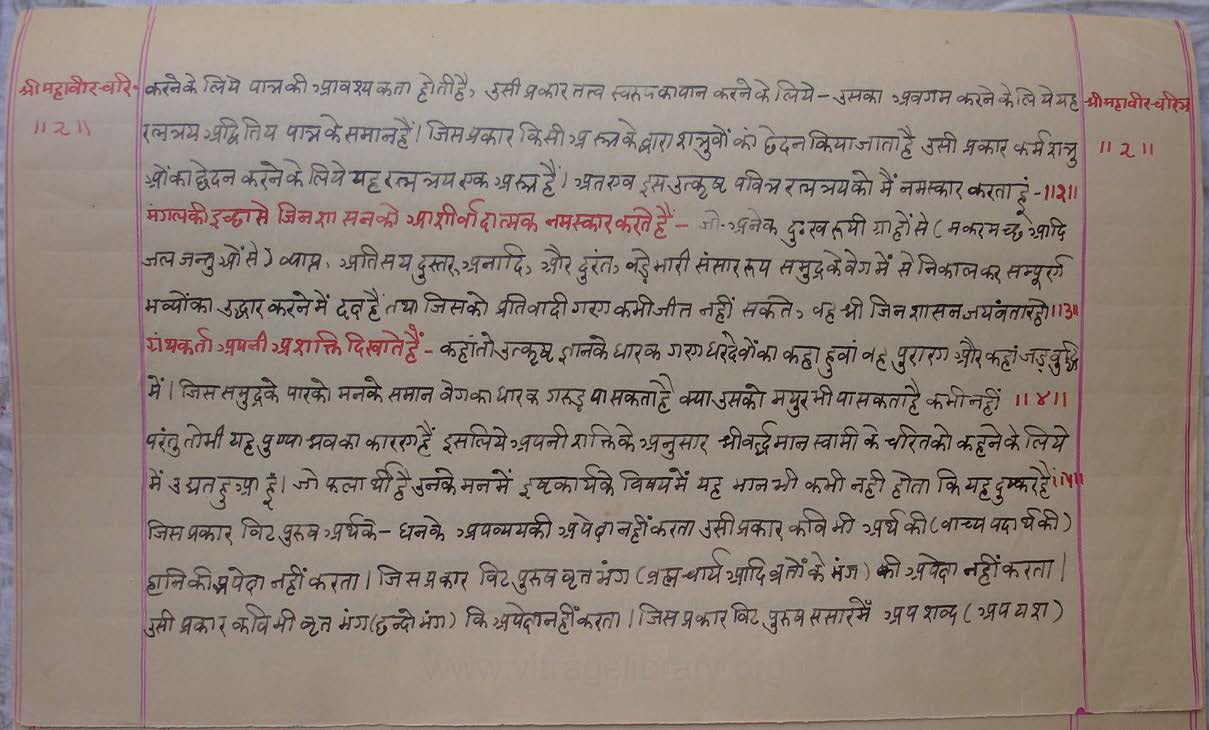 श्री महावीर-चरि-
॥२॥
श्री महावीर-चरित्र
॥२॥
करने के लिये पात्र की आवश्यकता होती है, उसी प्रकार तत्त्व स्वरूप का पान करने के लिये - उसका अवगम करने के लिये यह
रत्नत्रय अद्वितिय पात्र के समान हैं। जिस प्रकार किसी अस्त्र के द्वारा शत्रुवों का छेदन किया जाता है उसी प्रकार कर्म शत्रु
ओं का छेदन करने के लिये यह रत्नत्रय एक अस्त्र हैं। अतएव इस उत्कृष्ट पवित्र रत्नत्रय को मैं नमस्कार करता हूं - ॥२॥
मंगल की इच्छा से जिन शासन को आशीर्वादात्मक नमस्कार करते हैं - जो अनेक दुःख रूपी ग्राहों से (मकर मच्छ आदि
जल जन्तुओं से) व्याप्त, अतिसय दुस्तर, अनादि, और दुरंत, बड़े भारी संसार रूप समुद्र के वेग में से निकाल कर सम्पूर्ण
भव्यों का उद्धार करने में दक्ष है तथा जिसको प्रतिवादी गण कभी जीत नहीं सकते, वह श्री जिन शासन जयवंता रहो ॥३॥
ग्रंथकर्ता अपनी अशक्ति दिखाते हैं - कहां तो उत्कृष्ट ज्ञान के धारक गणधर देवों का कहा हुवां वह पुराण और कहां जड़ बुद्धि
में। जिस समुद्र के पार को मन के समान वेग का धारक गरुड़ पा सकता है क्या उसको मयुर भी पा सकता है कभी नहीं ॥४॥
परंतु तो भी यह पुण्याश्रव का कारण हैं इसलिये अपनी शक्ति के अनुसार श्री वर्द्धमान स्वामी के चरित को कहने के लिये
में उद्यत हुआ हूं। जो फलार्थी है उनके मन में इष्ट कार्य के विषय में यह भान भी कभी नही होता कि यह दुष्कर है ॥५॥
जिस प्रकार विट पुरुष अर्थ के - धन के अपव्यय की अपेक्षा नहीं करता उसी प्रकार कवि भी अर्थ की (वाच्य पदार्थ की)
हानि की अपेक्षा नहीं करता। जिस प्रकार विट पुरुष वृत्त भंग (ब्रह्मचार्य आदि व्रतों के भंग) की अपेक्षा नहीं करता।
उसी प्रकार कवि भी वृत भंग (छन्दो भंग) कि अपेक्षा नहीं करता। जिस प्रकार विट पुरुष संसार में अपशब्द (अपयश)
www.vitragelibrary.org